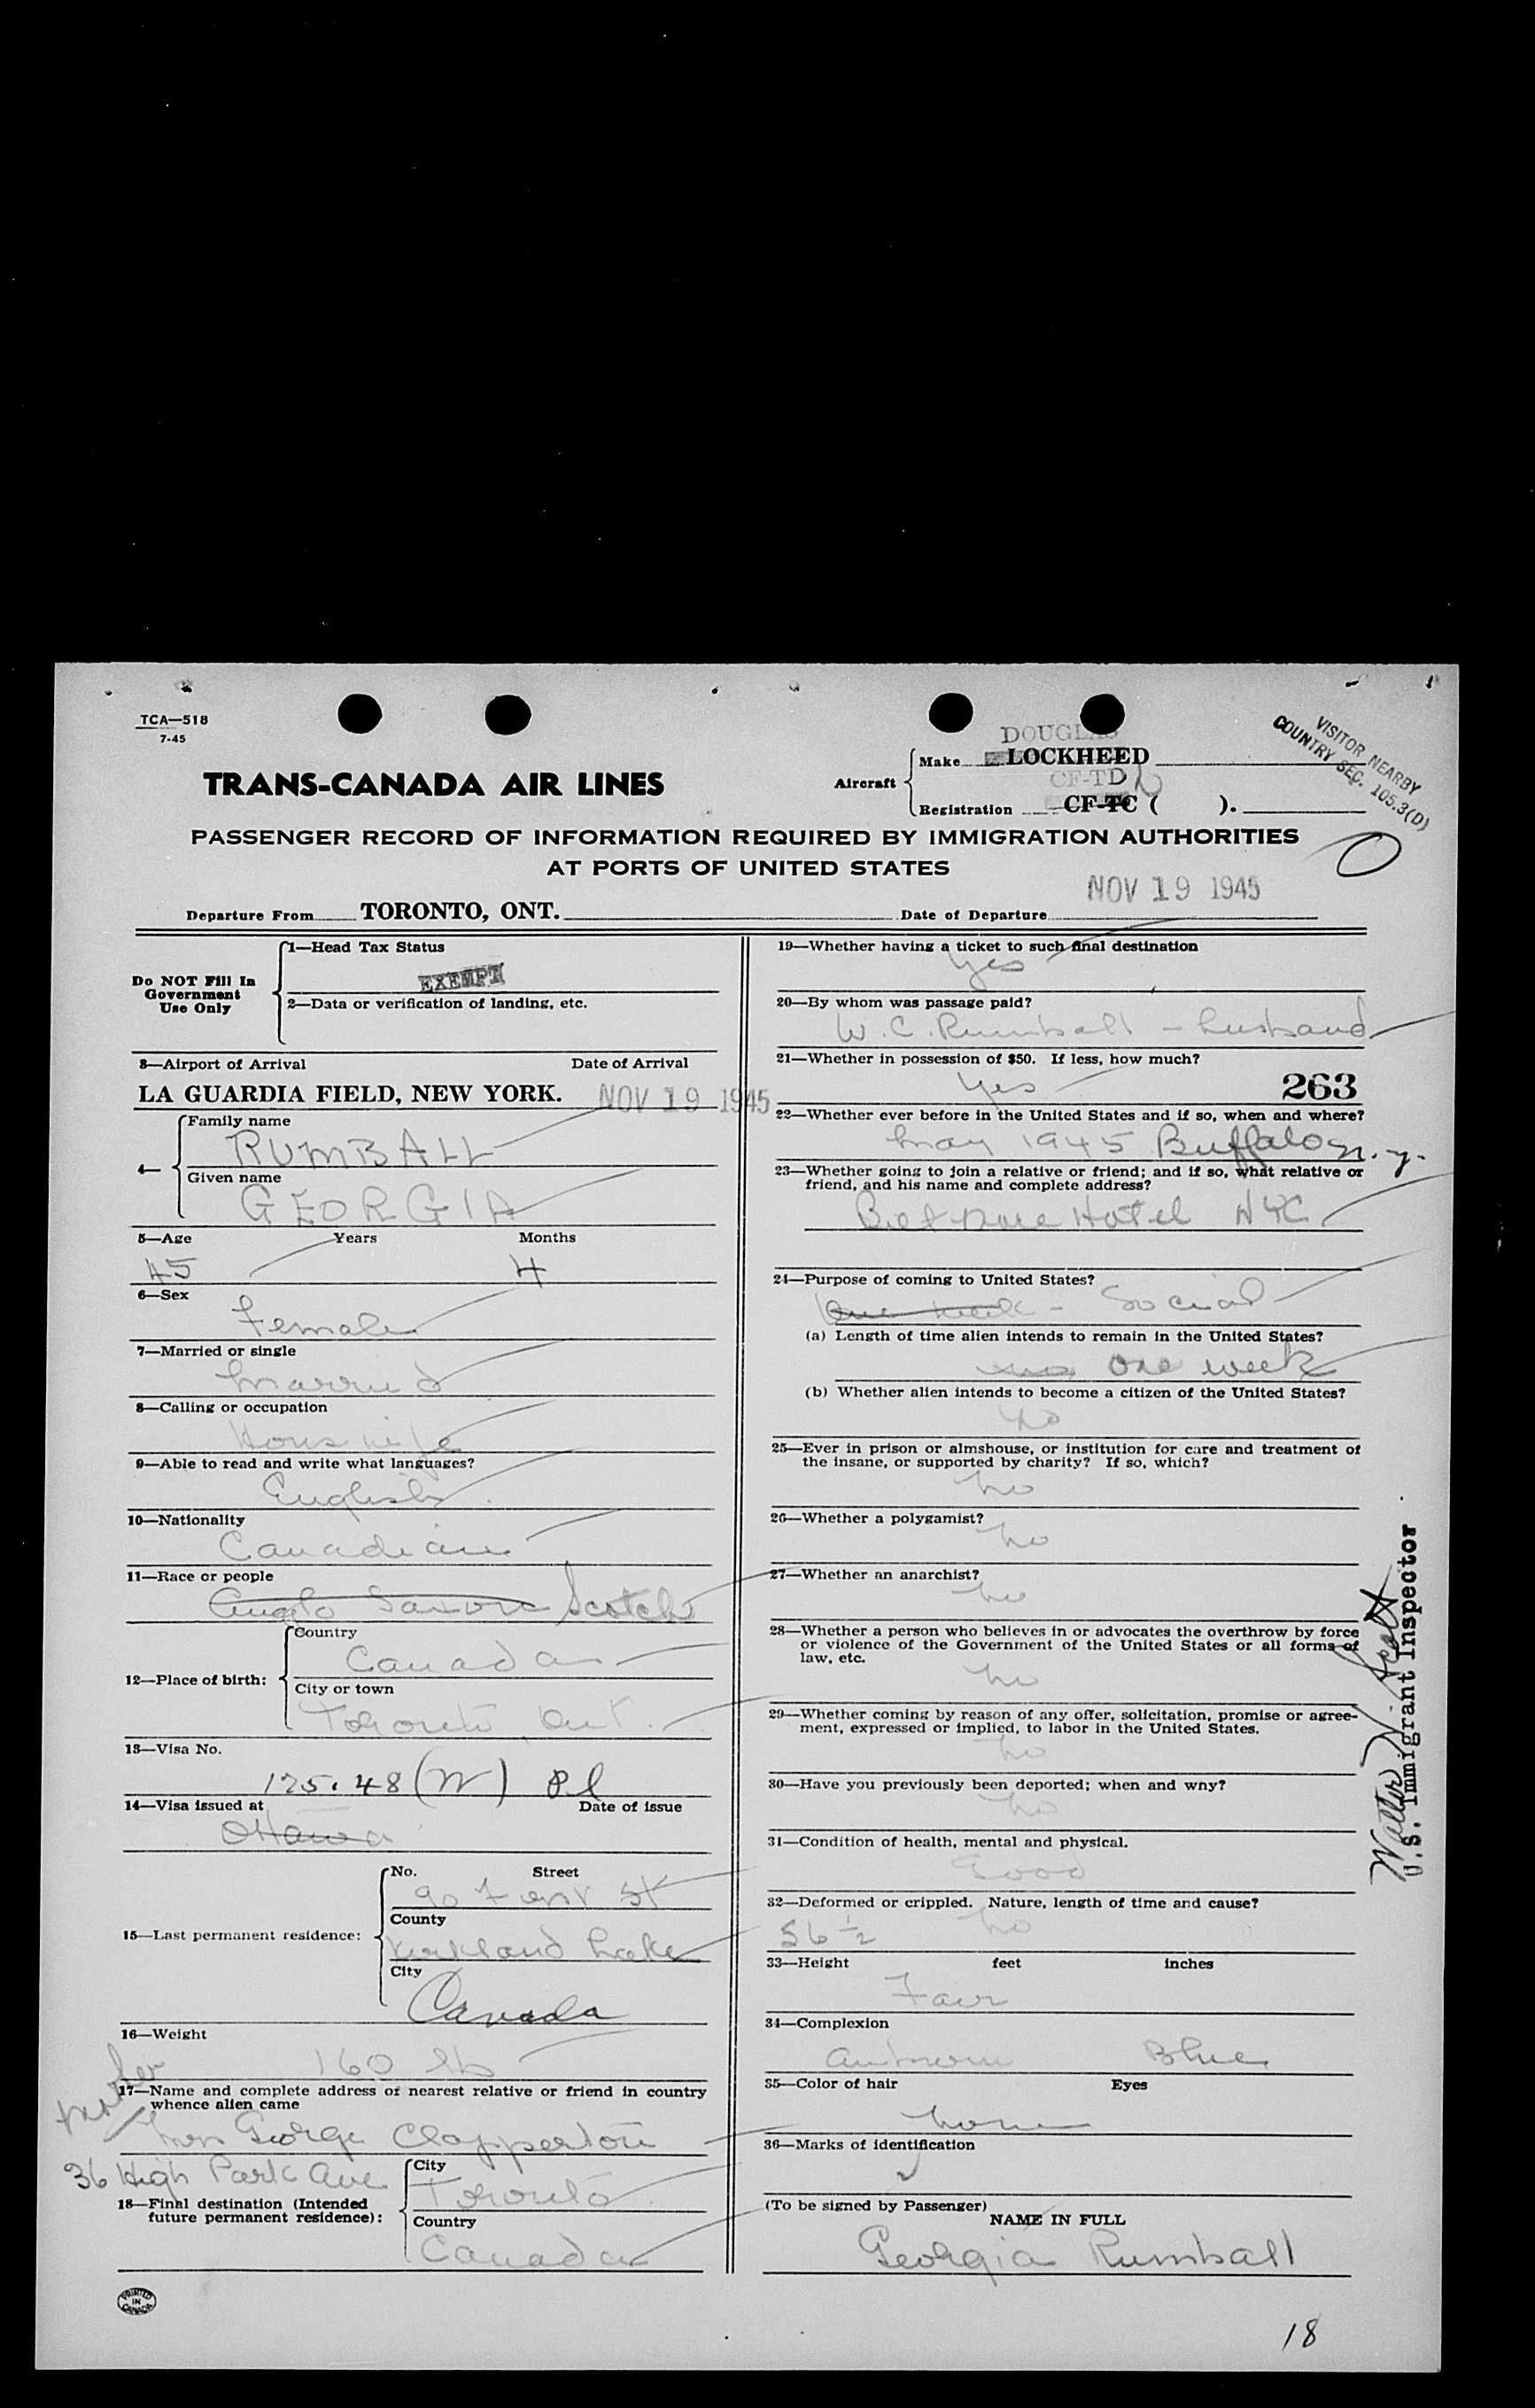 TCA—518
7-45
TRANS-CANADA AIR LINES
Aircraft
DOUGLAS
Make LOCKHEED
CF-TD
Registration CF-TC ( ).
VISITOR NEARBY
COUNTRY SEC. 105.3(D)
PASSENGER RECORD OF INFORMATION REQUIRED BY IMMIGRATION AUTHORITIES
AT PORTS OF UNITED STATES
NOV 19 1945
Departure From TORONTO, ONT. Date of Departure
Do NOT Fill In
Government
Use Only
1—Head Tax Status
EXEMPT
2—Data or verification of landing, etc.
3—Airport of Arrival Date of Arrival
LA GUARDIA FIELD, NEW YORK. NOV 19 1945
4—
Family name
RUMBALL
Given name
GEORGIA
5—Age Years Months
45 4
6—Sex
Female
7—Married or single
Married
8—Calling or occupation
Houswife
9—Able to read and write what languages?
English
10—Nationality
Canadian
11—Race or people
Anglo Saxon Scotch
12—Place of birth:
Country
Canada
City or town
Toronto Ont.
13—Visa No.
175.48 (W) Pl
14—Visa issued at Date of issue
Ottawa
15—Last permanent residence:
No. Street
90 St
County
Kirkland Lake
City
Canada
16—Weight
160 lb
Mother
17—Name and complete address of nearest relative or friend in country
whence alien came
Mrs George Clapperton
36 High Park Ave
18—Final destination (Intended
future permanent residence):
City
Toronto
Country
Canada
PRINTED
IN
CANADA
19—Whether having a ticket to such final destination
Yes
20—By whom was passage paid?
W. C. Rumball - husband
21—Whether in possession of $50. If less, how much?
Yes
263
22—Whether ever before in the United States and if so, when and where?
May 1945 Buffalo n.y.
23—Whether going to join a relative or friend; and if so, what relative or
friend, and his name and complete address?
Hotel NYC
24—Purpose of coming to United States?
One week - Social
(a) Length of time alien intends to remain in the United States?
one week
(b) Whether alien intends to become a citizen of the United States?
No
25—Ever in prison or almshouse, or institution for care and treatment of
the insane, or supported by charity? If so, which?
No
26—Whether a polygamist?
No
27—Whether an anarchist?
No
28—Whether a person who believes in or advocates the overthrow by force
or violence of the Government of the United States or all forms of
law, etc.
No
29—Whether coming by reason of any offer, solicitation, promise or agree-
ment, expressed or implied, to labor in the United States.
No
30—Have you previously been deported; when and why?
No
31—Condition of health, mental and physical.
Good
32—Deformed or crippled. Nature, length of time and cause?
No
56 1/2
33—Height feet inches
Fair
34—Complexion
Auburn Blue
35—Color of hair Eyes
None
36—Marks of identification
(To be signed by Passenger)
NAME IN FULL
Georgia Rumball
Walter Scott
U.S. Immigrant Inspector
18